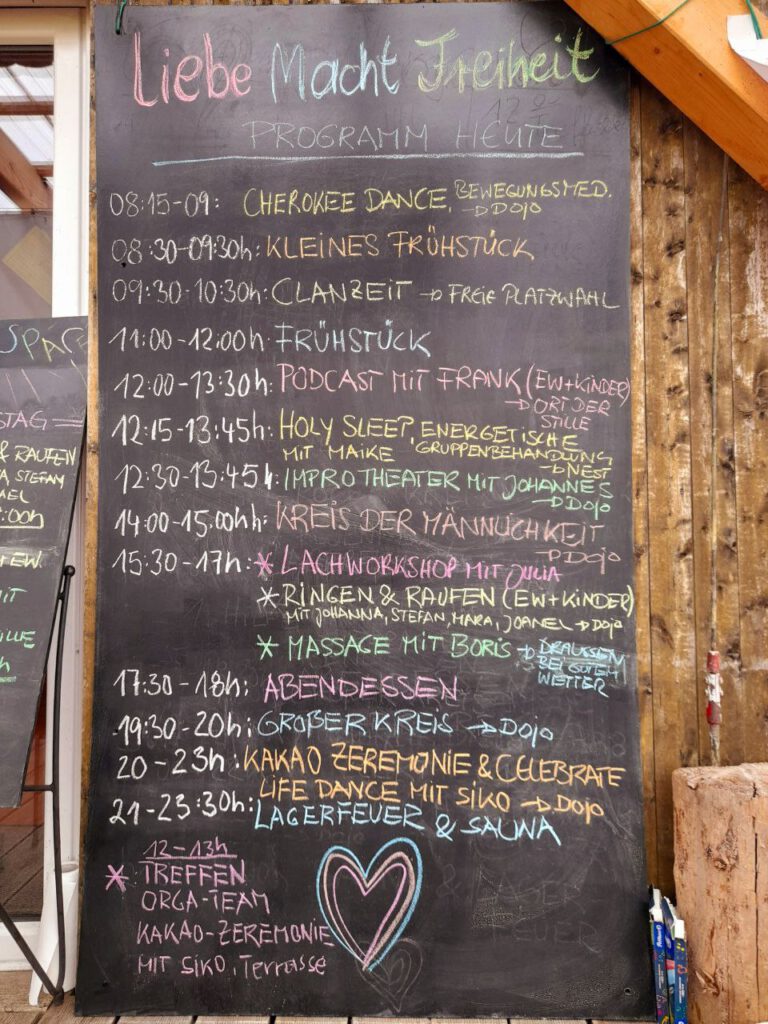 Liebe Macht Freiheit
PROGRAMM HEUTE
08:15-09: CHEROKEE DANCE, BEWEGUNGSMED.
→ DOJO
08:30-09:30h: KLEINES FRÜHSTÜCK
09:30-10:30h: CLANZEIT → FREIE PLATZWAHL
11:00-12:00h: FRÜHSTÜCK
12:00-13:30h: PODCAST MIT FRANK (EW+KINDER)
→ ORT DER
STILLE
12:15-13:45h: HOLY SLEEP, ENERGETISCHE
MIT MAIKE GRUPPENBEHANDLUNG
→ NEST
12:30-13:45h: IMPROTHEATER MIT JOHANNES
→ DOJO
14:00-15:00hh: KREIS DER MÄNNLICHKEIT
→ DOJO
15:30-17h: * LACHWORKSHOP MIT JULIA
* RINGEN & RAUFEN (EW+KINDER)
MIT JOHANNA, STEFAN, MARA, JOANEL → DOJO
* MASSAGE MIT BORIS → DRAUSSEN
BEI GUTEM
WETTER
17:30-18h: ABENDESSEN
19:30-20h: GROßER KREIS → DOJO
20-23h: KAKAO ZEREMONIE & CELEBRATE
LIFE DANCE MIT SIKO → DOJO
21-23:30h: LAGERFEUER & SAUNA
12-13h
* TREFFEN
ORGA-TEAM
KAKAO-ZEREMONIE
MIT SIKO, Terrasse
SPACE
STAG
& RAUFEN
STEFAN
EL
:00h
EW.
IT
ILLE
h